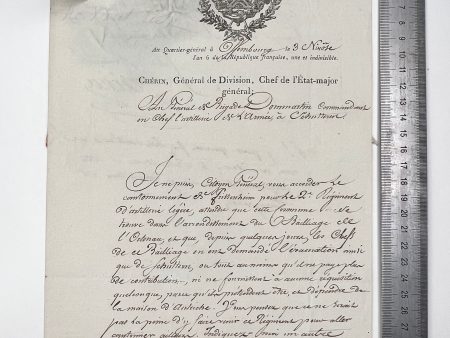 Au Quartier-général à Offembourg le 3 Nivôse
l'an 6 de la République française, une et indivisible.
CHÉRIN, Général de Division, Chef de l'État-major
général;
Au Général de Brigade Dommartin Commandant
en Chef l'artillerie de l'Armée, à Schuttern
Je ne puis, Citoyen Général, vous accorder le
cantonnement de pour le 2e Régiment
d'artillerie légère, attendu que cette Commune se
trouve dans l'arrondissement du Bailliage de
l'Ortenau, et que depuis quelques jours, les Chefs
de ce Bailliage en ont demandé l'évacuation ainsi
que de Schuttern, ou tout au moins qu'il ne paye plus
de contribution, ni ne fournissent à aucune réquisition
quelconque, parce qu'ils prétendent être, et dépendre de
la maison d'Autriche. J'ai pensé que ce ne serait
pas la peine d'y faire venir ce Régiment pour aller
cantonner ailleurs. Indiquez moi un autre
7
8
9
10
11
12
13
14
15
16
17
18
19
20
21
22
23
24
25
26
27